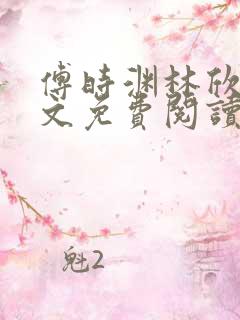 傅時渊林欣
文免費閱讀
魁2